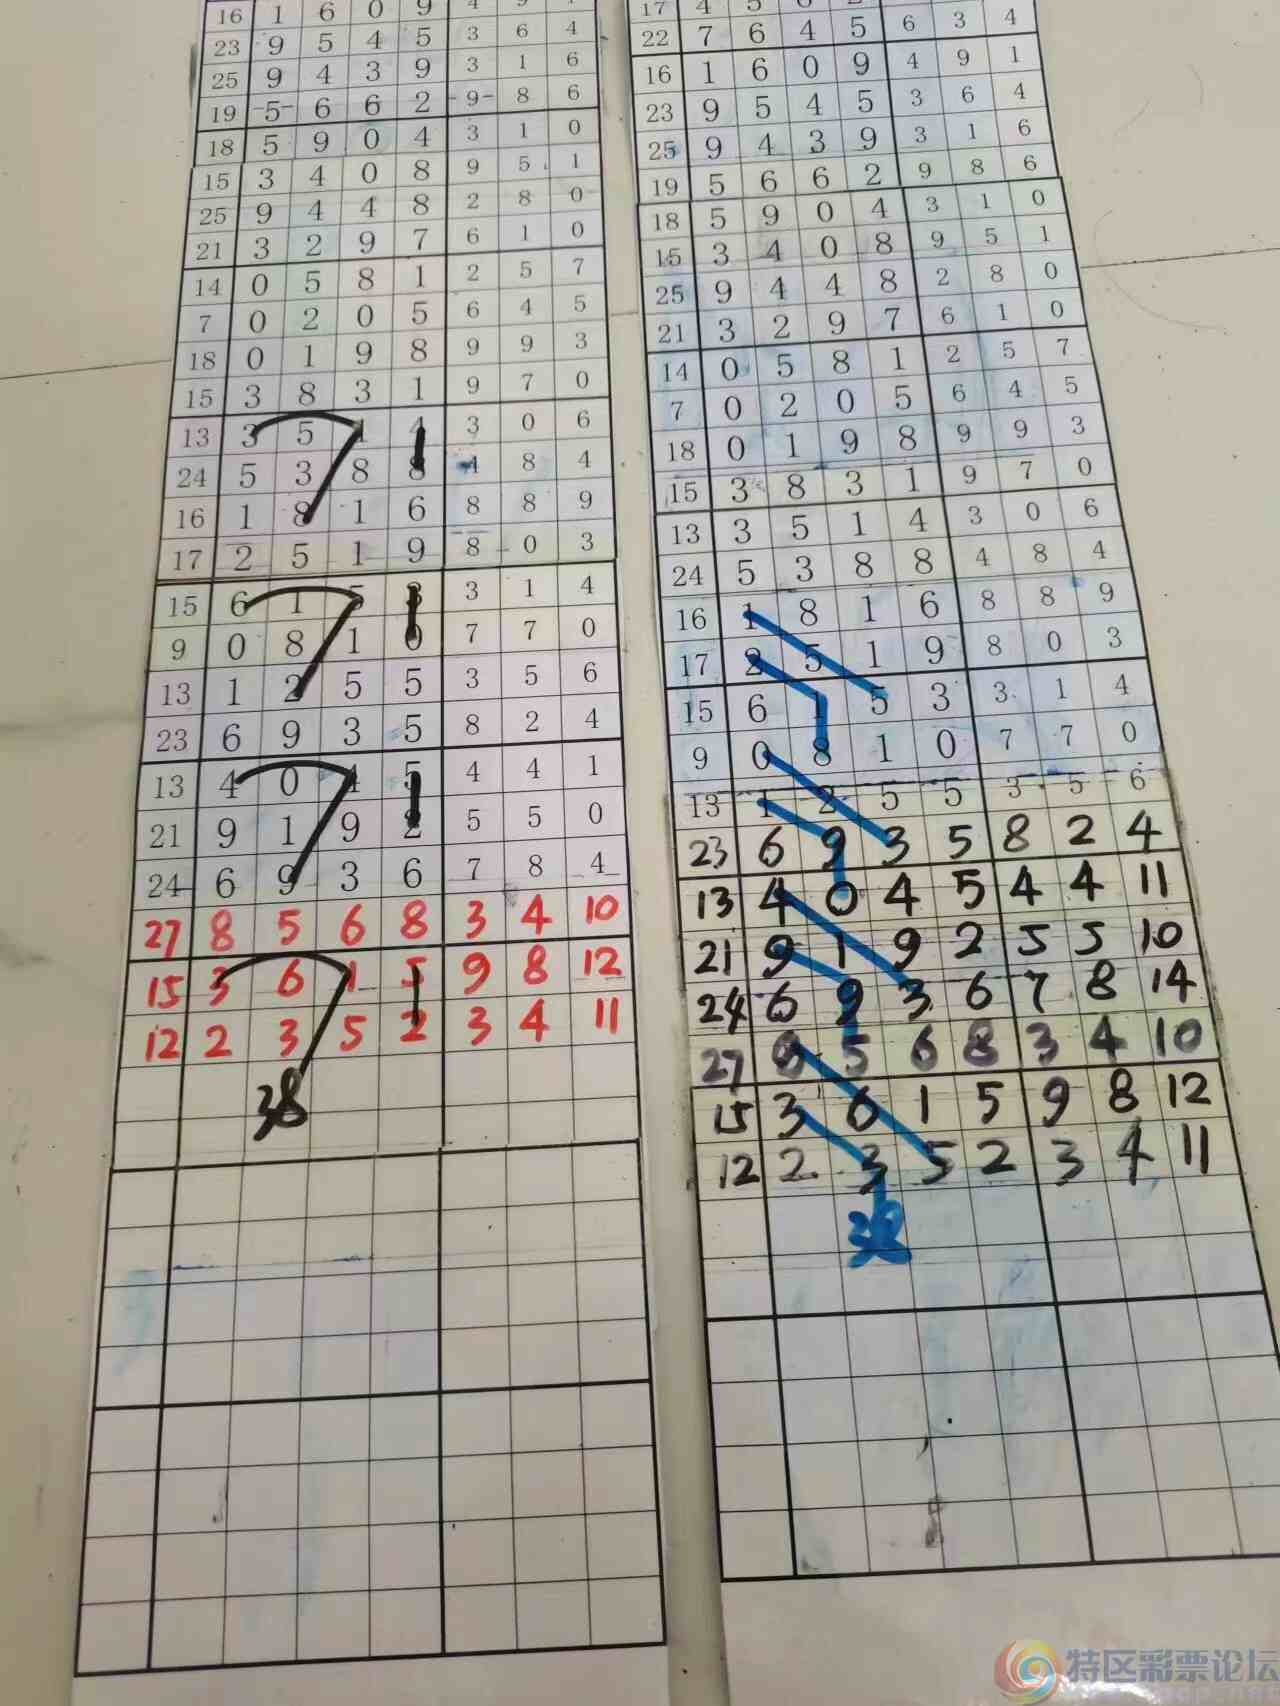 16 1 6 0 9 4 9
23 9 5 4 5 3 6 4
25 9 4 3 9 3 1 6
19 5 6 6 2 9 8 6
18 5 9 0 4 3 1 0
15 3 4 0 8 9 5 1
25 9 4 4 8 2 8 0
21 3 2 9 7 6 1 0
14 0 5 8 1 2 5 7
7 0 2 0 5 6 4 5
18 0 1 9 8 9 9 3
15 3 8 3 1 9 7 0
13 3 5 1 4 3 0 6
24 5 3 8 8 4 8 4
16 1 8 1 6 8 8 9
17 2 5 1 9 8 0 3
15 6 1 5 3 3 1 4
9 0 8 1 0 7 7 0
13 1 2 5 5 3 5 6
23 6 9 3 5 8 2 4
13 4 0 4 5 4 4 1
21 9 1 9 2 5 5 0
24 6 9 3 6 7 8 4
27 8 5 6 8 3 4 10
15 3 6 1 5 9 8 12
12 2 3 5 2 3 4 11
38
17 4 5
22 7 6 4 5 6 3 4
16 1 6 0 9 4 9 1
23 9 5 4 5 3 6 4
25 9 4 3 9 3 1 6
19 5 6 6 2 9 8 6
18 5 9 0 4 3 1 0
15 3 4 0 8 9 5 1
25 9 4 4 8 2 8 0
21 3 2 9 7 6 1 0
14 0 5 8 1 2 5 7
7 0 2 0 5 6 4 5
18 0 1 9 8 9 9 3
15 3 8 3 1 9 7 0
13 3 5 1 4 3 0 6
24 5 3 8 8 4 8 4
16 1 8 1 6 8 8 9
17 2 5 1 9 8 0 3
15 6 1 5 3 3 1 4
9 0 8 1 0 7 7 0
13 1 2 5 5 3 5 6
23 6 9 3 5 8 2 4
13 4 0 4 5 4 4 11
21 9 1 9 2 5 5 10
24 6 9 3 6 7 8 14
27 8 5 6 8 3 4 10
15 3 6 1 5 9 8 12
12 2 3 5 2 3 4 11
38
特区彩票论坛